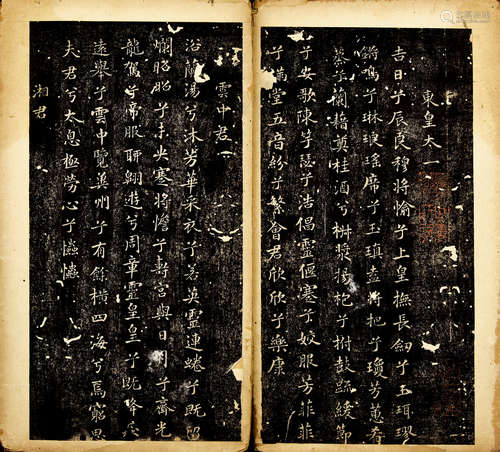 東皇太一
吉日兮辰良穆將愉兮上皇撫長劍兮玉珥璆
鏘鳴兮琳琅瑤席兮玉瑱盍將把兮瓊芳蕙肴
蒸兮蘭藉奠桂酒兮椒漿揚枹兮拊鼓疏緩節
兮安歌陳竽瑟兮浩倡靈偃蹇兮姣服芳菲菲
兮滿堂五音紛兮繁會君欣欣兮樂康
雲中君
浴蘭湯兮沐芳華采衣兮若英靈連蜷兮既留
爛昭昭兮未央蹇將憺兮壽宮與日月兮齊光
龍駕兮帝服聊翱遊兮周章靈皇皇兮既降猋
遠舉兮雲中覽冀州兮有餘橫四海兮焉窮思
夫君兮太息極勞心兮忡忡
湘君